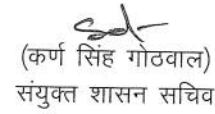 Sd-
(कर्ण सिंह गोठवाल)
संयुक्त शासन सचिव